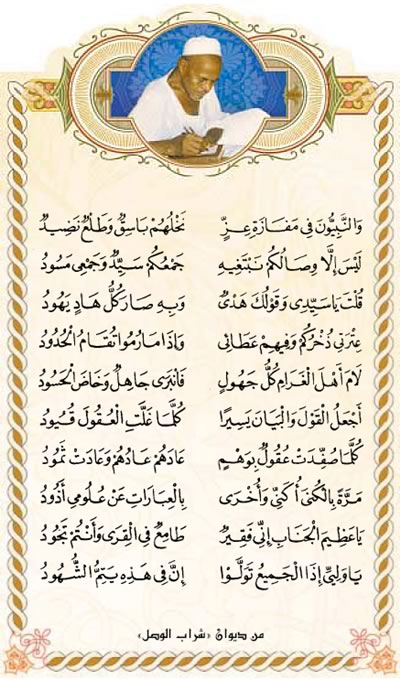 وَالنَّبِيُّونَ فِي مَفَازَةِ عِزٍّ نَخْلُهُمْ بَاسِقٌ وَطَلْعٌ نَضِيدُ
لَيْسَ إِلَّا وِصَالُكُمْ نَبْتَغِيهِ جَمْعُكُمْ سَيِّدٌ وَجَمْعِي مَسُودُ
قُلْتَ يَا سَيِّدِي وَقَوْلُكَ هَدْيٌ وَبِهِ صَارَ كُلُّ هَادٍ يَهُودُ
عِتْرَتِي ذُخْرُكُمْ وَفِيهِمْ عَطَائِي وَإِذَا مَا رُمُوا تُقَامُ الْحُدُودُ
لَامَ أَهْلَ الْغَرَامِ كُلُّ جَهُولٍ فَانْبَرَى جَاهِلٌ وَخَاضَ الْحَسُودُ
أَجْعَلُ الْقَوْلَ وَالْبَيَانَ يَسِيرًا كُلَّمَا غَلَّتِ الْعُقُولَ قُيُودُ
كُلَّمَا صُفِّدَتْ عُقُولٌ بِوَهْمٍ عَادَهُمْ عَادُهُمْ وَعَادَتْ ثَمُودُ
مَرَّةً بِالْكُنَى أُكَنِّي وَأُخْرَى بِالْعِبَارَاتِ عَنْ عُلُومِي أَذُودُ
يَا عَظِيمَ الْجَنَابِ إِنِّي فَقِيرٌ طَامِعٌ فِي الْقِرَى وَأَنْتُمْ تَجُودُ
يَا وَلِيِّي إِذَا الْجَمِيعُ تَوَلَّوْا إِنَّ فِي هَذِهِ يَتِمُّ الشُّهُودُ
من ديوان «شراب الوصل»